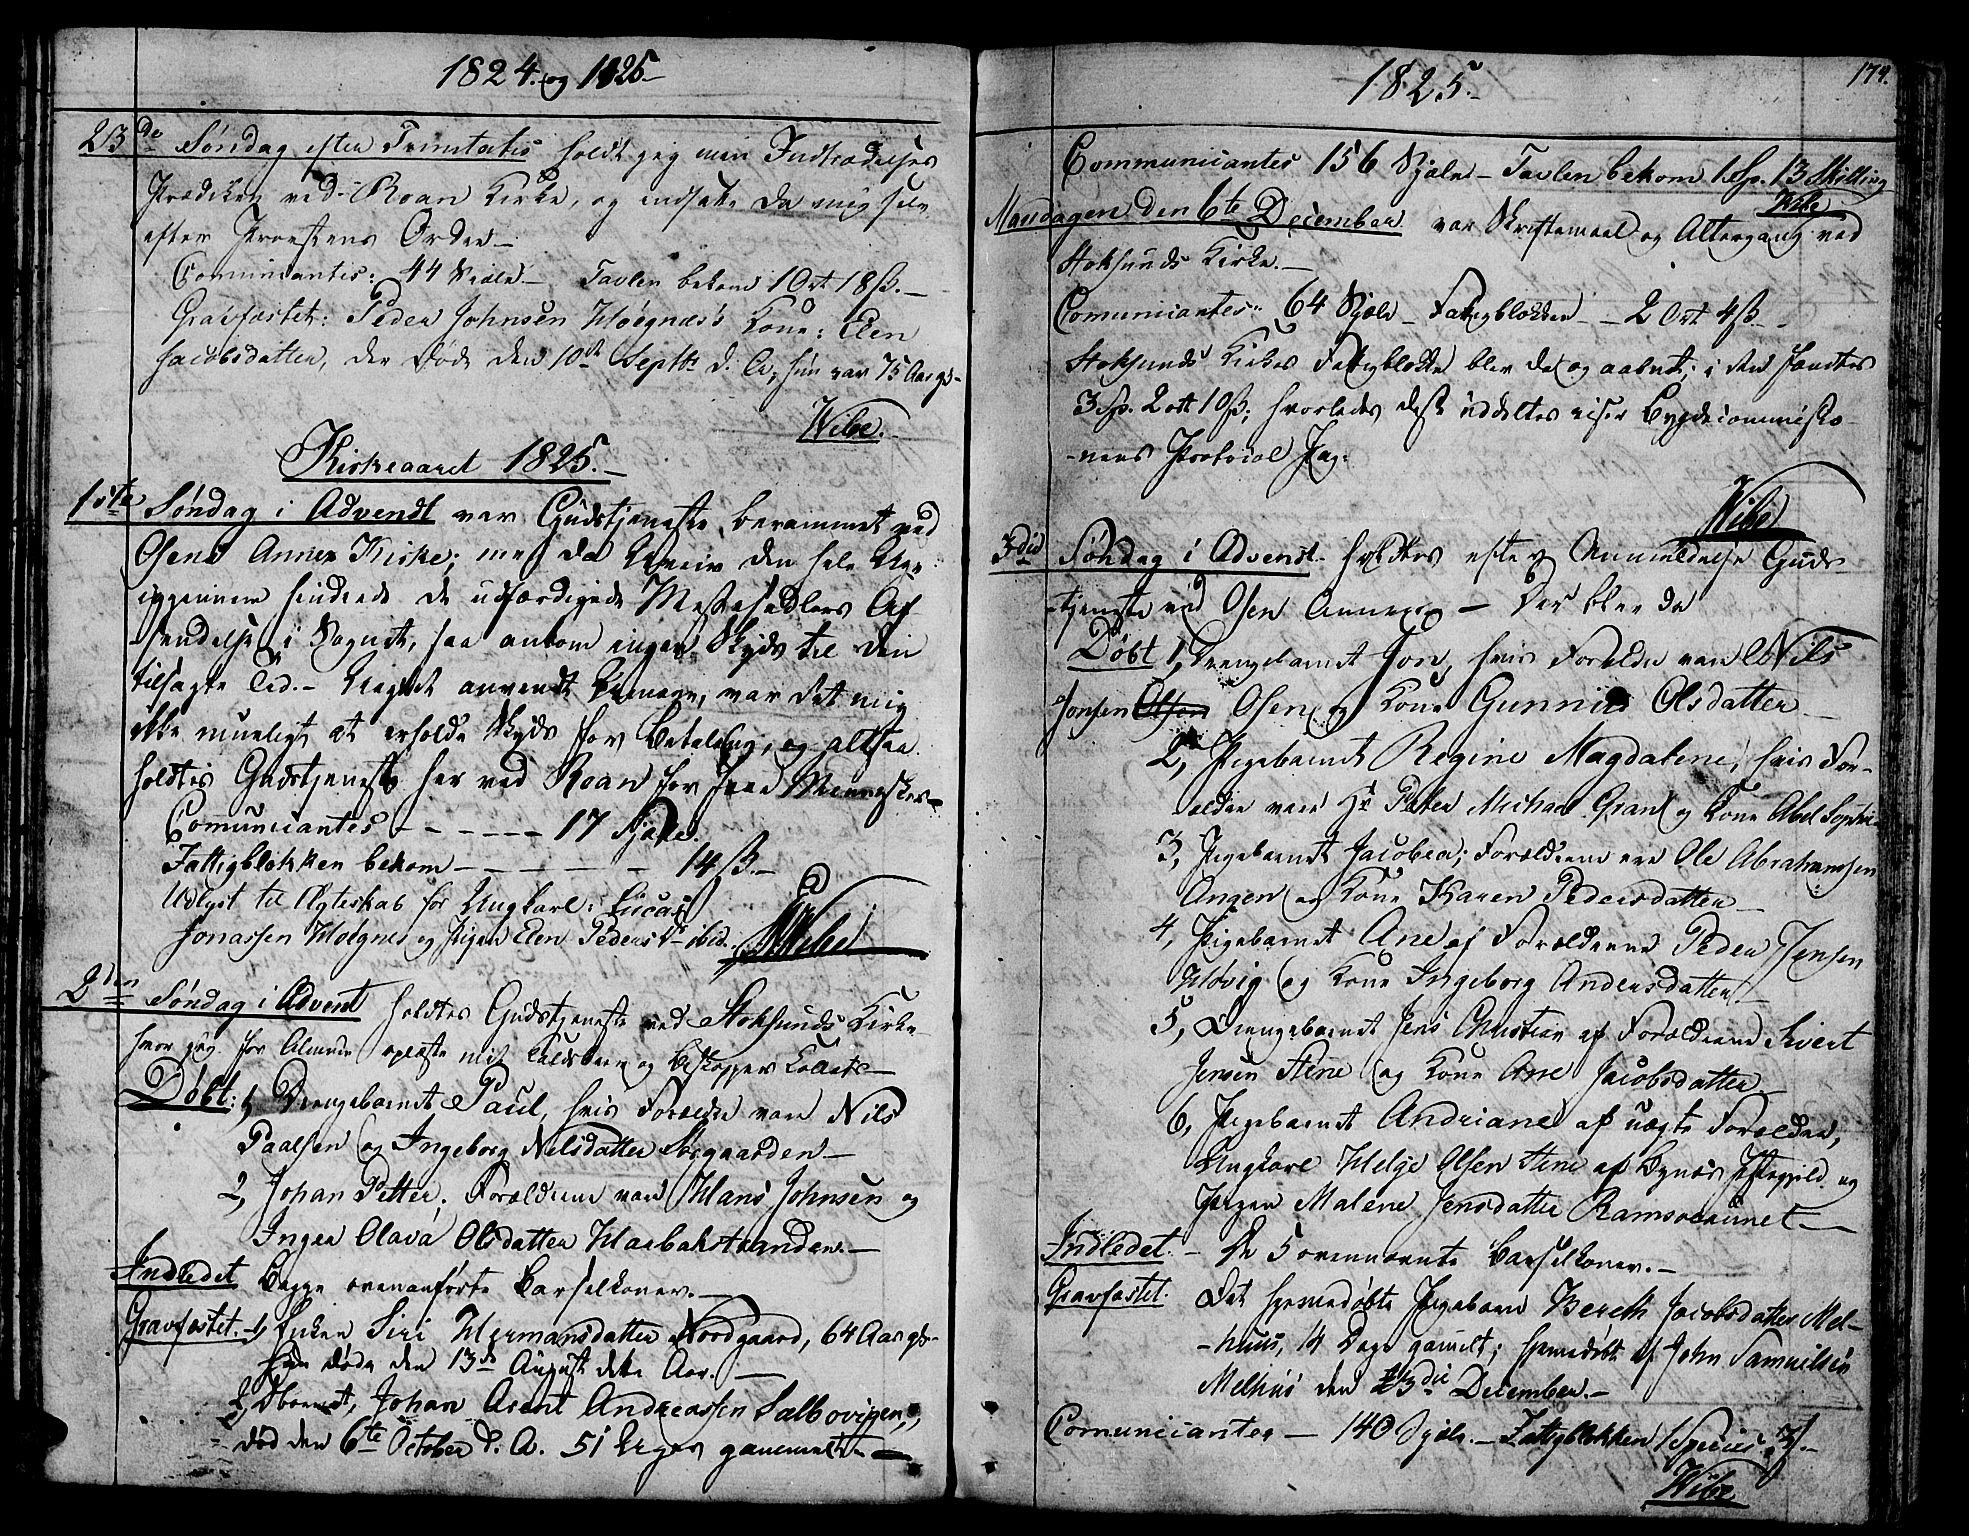 1824. og 1825
23de Søndag efter Trinitatis holdt jeg min Indtrædelses
Prædiken ved Roan Kirke, og indsatte da mig selv
efter Provstens Order
Comunicantes: 44 Siæle. Tavlen bekom 1 Ort 18 ß.
Gravfæstet: Peder Johnsen Hoegnæs's Kone: Elen
Jacobsdatter, der døde den 10de Septbr d. A, hun var 75 Aar gl.
Wibe.
Kirkeaaret 1825.
1ste Søndag i Advendt var Gudstjeneste berammet ved
Osens Annex Kirke; men da Uveir den hele Uge
igjennem hindrede de udfærdigede Messesedlers Af-
sendelse i Sognet, saa ankom ingen Skyds til den
tilsagte Tid. Uagtet anvendt Umage, var det mig
ikke mueligt at erholde Skyds for Betaling, og altsaa
holdtes Gudstjeneste her ved Roan for faae Mennesker
Comunicantes - - - - - - 17 Sjæle.
Fattigblokken bekom - - - - - - 14 ß.
Udlyst til Ægteskab for Ungkarl: Lucas
Jonassen Hoegnes og Pigen Elen Pedersdr ibid.. Wibe
2den Søndag i Advent holdtes Gudstjeneste ved Stoksunds Kirke
hvor jeg for Almuen oplæste mit Kaldsbrev og Bispens Collats
Døbt: 1, Drengebarnet Paul, hvis Forældre vare Nils
Paalsen og Ingeborg Nelsdatter Storgaarden
2, Johan Petter; Forældrene vare Hans Johnsen og
Inger Olava Olsdatter Harbakstranden.
Indledet Begge ovenanførte Barselkoner.
Gravfæstet. 1, Enken Siri Hermansdatter Nordgaard, 64 Aar gl.
hun døde den 13de August dette Aar.
2, Barnet, Johan Arent Andreassen Salbovigen,
død den 6te October d. A. 5½ Uger gammelt
1825.
174.
Communicantes 156 Sjæle - Tavlen bekom 1 Sp. 13 Skilling
Wibe
Mandagen den 6te December var Skriftemaal og Altergang ved
Stoksunds Kirke.
Comunicantes 64 Sjæle - Fattigblokken - 2 Ort 4 ß
Stoksunds Kirkes Fattigblokke blev da og aabnet; i den fandtes
3 Sp. 2 ort 10 ß; hvorledes disse uddeltes viser Bygdecommissio-
-nens Protocol Pag:
Wibe
3die Søndag i Advent holdtes efter Anmeldelse Guds-
tjeneste ved Osen Annex - Der blev da
Døbt 1, Drengebarnet Jon, hvis Forældre vare Nils
Jonsen Olsen Osen og Kone Gunnild Olsdatter
2, Pigebarnet Regine Magdalene, hvis For-
ældre vare Hr Peter Michael Gran og Kone Abel Sophie
3, Pigebarnet Jacobea; Forældrene ere Ole Abrahamsen
Angen og Kone Karen Pedersdatter
4, Pigebarnet Ane af Forældrene Peder Jensen
Hovig og Kone Ingeborg Andersdatter
5, Drengebarnet Jens Christian af Forældrene Sivert
Jensen Stene og Kone Ane Jacobsdatter
6, Pigebarnet Andriane af uægte Forældre,
Ungkarl Helge Olsen Stene af Bynæs Præstegield og
Pigen Malene Jensdatter Ramsoeaunet
Indledet. - De 5 ovennævnte Barselkoner.
Gravfæstet. Det hjemmedøbte Pigebarn Bereth Jacobsdatter Mel-
-huus, 14 Dage gammelt; hjemmedøbt af John Samuelsen
Melhus den 3die December.
Comunicanter - 140 Sjæle. - Fattigblokken 1 Species
Wibe